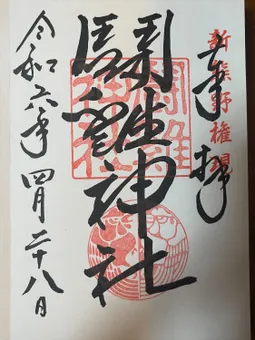 新熊野権現
奉拝
鬪雞神社
鬪雞
神社
令和六年四月二十八日